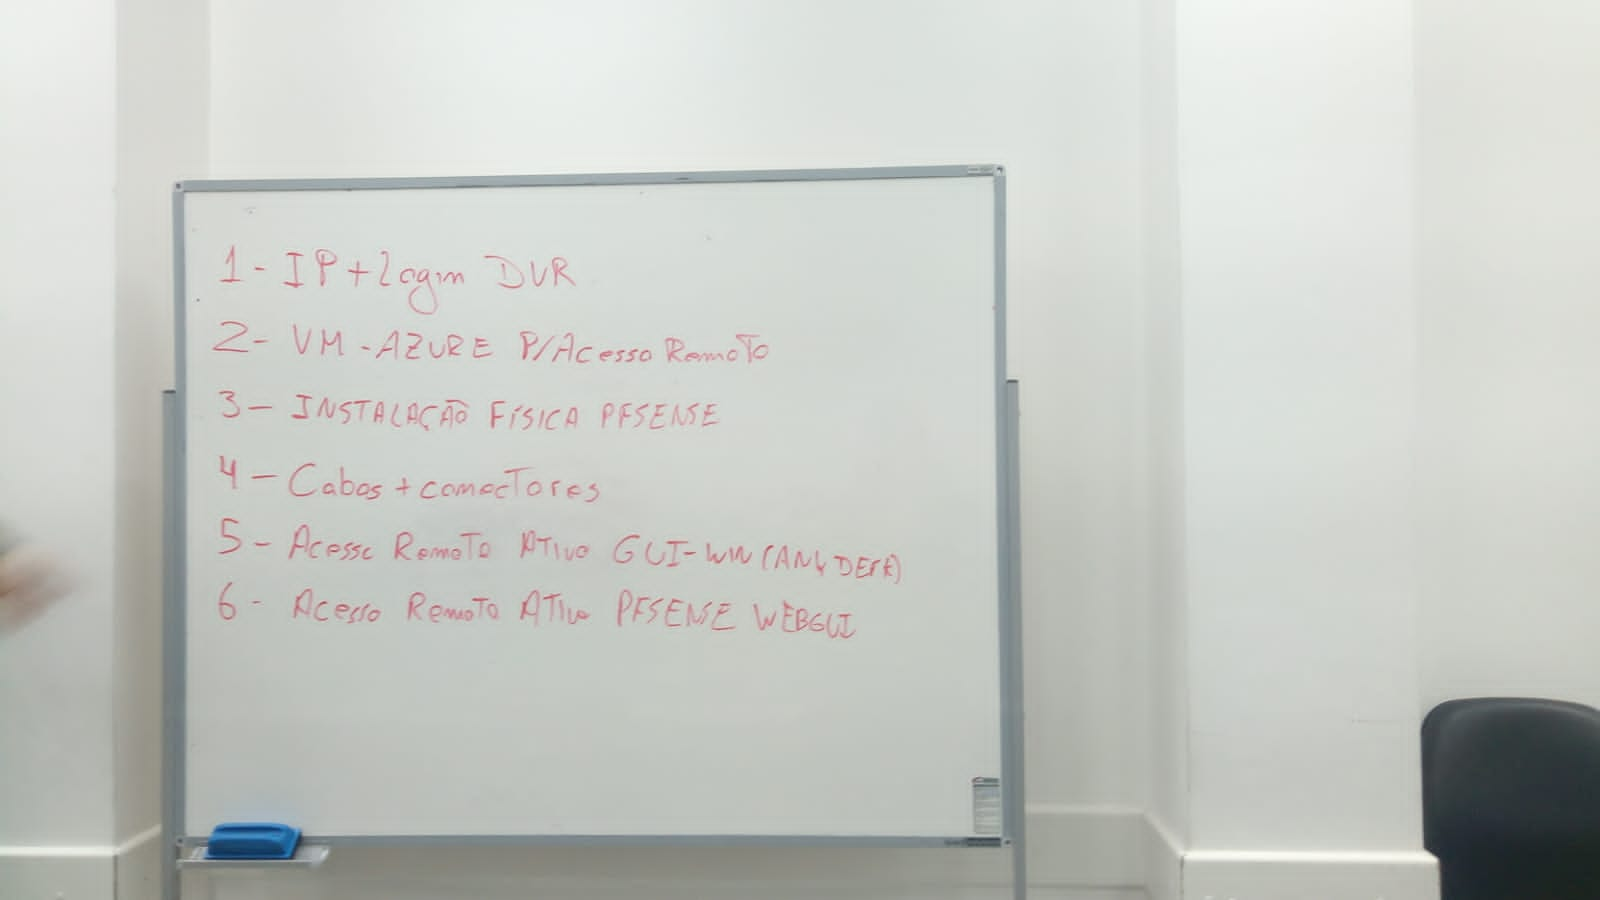 1- IP + Login DVR
2- VM - AZURE P/Acesso Remoto
3- INSTALAÇÃO FÍSICA PFSENSE
4- Cabos + conectores
5- Acesso Remoto Ativo GUI-WIN (ANYDESK)
6- Acesso Remoto Ativo PFSENSE WEBGUI